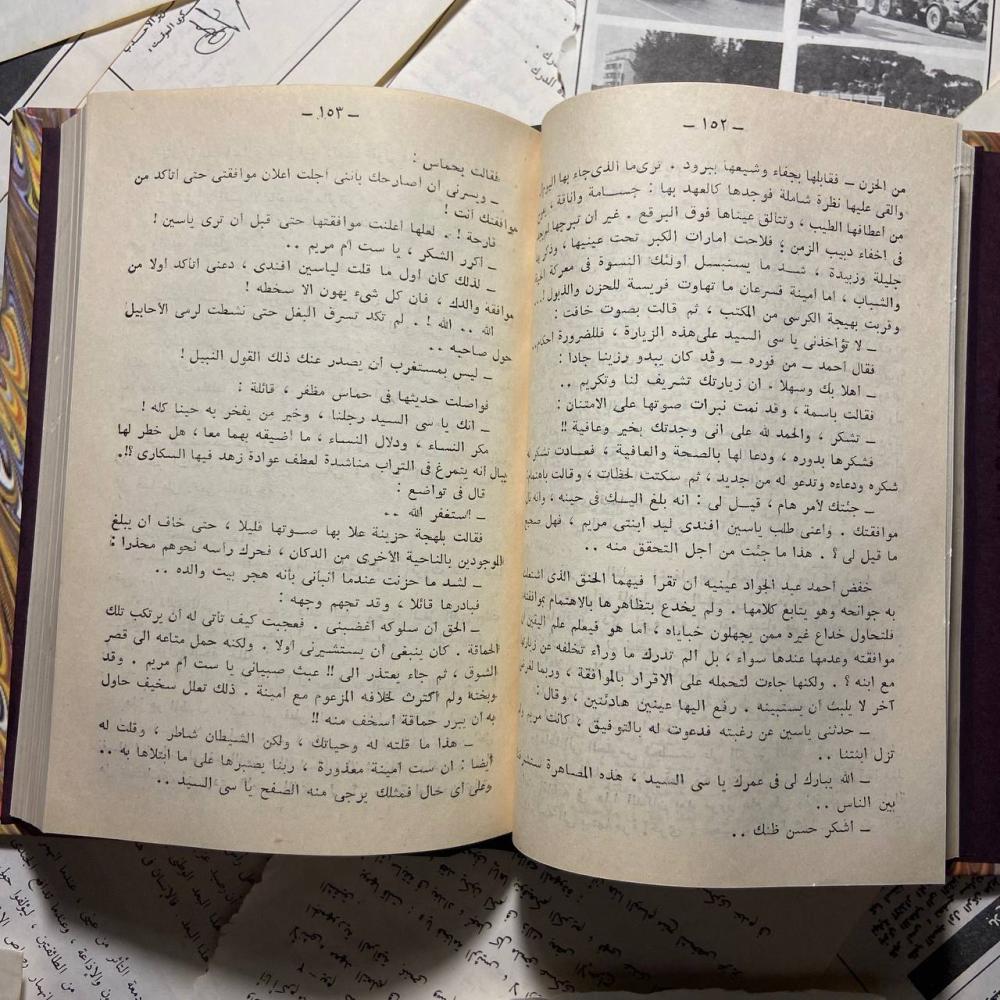 – ١٥٢ –
من الحزن – فقابلها بجفاء وشيعها ببرود . ترى ما الذى جاء بها اليوم
والقى عليها نظرة شاملة فوجدها كالعهد بها : جسامة واناقة ،
من اعطافها الطيب ، وتتألق عيناها فوق البرقع . غير ان تبرجها لم
فى اخفاء دبيب الزمن ؛ فلاحت امارات الكبر تحت عينيها ، وذكر
جليلة وزبيدة ، شد ما يستبسل اولئك النسوة فى معركة
والشباب ، اما امينة فسرعان ما تهاوت فريسة للحزن والذبول ! . .
وقربت بهيجة الكرسى من المكتب ، ثم قالت بصوت خافت :
– لا تؤاخذنى يا سى السيد على هذه الزيارة ، فللضرورة
فقال احمد – من فوره – وقد كان يبدو رزينا جادا :
– اهلا بك وسهلا . ان زيارتك تشريف لنا وتكريم . .
فقالت باسمة ، وقد نمت نبرات صوتها على الامتنان :
– تشكر ، والحمد لله على انى وجدتك بخير وعافية !!
فشكرها بدوره ، ودعا لها بالصحة والعافية ، فعادت تشكر
شكره ودعاءه وتدعو له من جديد ، ثم سكتت لحظات ، وقالت باهتمام
– جئتك لأمر هام ، قيل لى : انه بلغ اليك فى حينه ، وانه
موافقتك . واعنى طلب ياسين افندى ليد ابنتى مريم ، فهل صحيح
ما قيل لى ؟ . هذا ما جئت من اجل التحقق منه . .
خفض احمد عبد الجواد عينيه أن تقرأ فيهما الحنق الذى اشتعلت
به جوانحه وهو يتابع كلامها . ولم يخدع بتظاهرها بالاهتمام بموافقته
فلتحاول خداع غيره ممن يجهلون خباياه ، أما هو فيعلم علم اليقين
موافقته وعدمها عندها سواء ، بل ألم تدرك ما وراء تخلفه عن زيارة
مع ابنه ؟ . ولكنها جاءت لتحمله على الاقرار بالموافقة ، وربما لغرض
آخر لا يلبث أن يستبينه . رفع اليها عينين هادئتين ، وقال :
– حدثنى ياسين عن رغبته فدعوت له بالتوفيق ، كانت مريم
تزل ابنتنا . .
– الله يبارك لى فى عمرك يا سى السيد ، هذه المصاهرة
بين الناس . .
– أشكر حسن ظنك . .
– ١٥٣ –
فقالت بحماس :
– ويسرنى ان أصارحك بأننى أجلت اعلان موافقتى حتى أتاكد من
موافقتك انت !
قارحة ! . لعلها اعلنت موافقتها حتى قبل ان ترى ياسين !
– اكرر الشكر ، يا ست ام مريم . .
– لذلك كان اول ما قلت لياسين افندى ، دعنى اتأكد اولا من
موافقة والدك ، فان كل شىء يهون الا سخطه !
الله . . الله ! . لم تكد تسرق البغل حتى نشطت لرمى الأحابيل
حول صاحبه . .
– ليس بمستغرب أن يصدر عنك ذلك القول النبيل !
فواصلت حديثها فى حماس مظفر ، قائلة :
– انك يا سى السيد رجلنا ، وخير من يفخر به حينا كله !
مكر النساء ، ودلال النساء ، ما أضيقه بهما معا ، هل خطر لها
ببال انه يتمرغ فى التراب مناشدة لعطف عوادة زهد فيها السكارى ؟! .
قال فى تواضع :
– أستغفر الله . .
فقالت بلهجة حزينة علا بها صوتها قليلا ، حتى خاف ان يبلغ
الموجودين بالناحية الأخرى من الدكان ، فحرك رأسه نحوهم محذرا :
– لشد ما حزنت عندما أنبأنى بأنه هجر بيت والده . .
فبادرها قائلا ، وقد تجهم وجهه :
– الحق أن سلوكه أغضبنى . فعجبت كيف تأتى له أن يرتكب تلك
الحماقة . كان ينبغى أن يستشيرنى اولا . ولكنه حمل متاعه الى قصر
الشوق ، ثم جاء يعتذر الى !! عبث صبيانى يا ست أم مريم . وقد
وبخته ولم اكترث لخلافه المزعوم مع امينة . ذلك تعلل سخيف حاول
به أن يبرر حماقة أسخف منه !!
– هذا ما قلته له وحياتك ، ولكن الشيطان شاطر ، وقلت له
أيضا : ان ست أمينة معذورة ، ربنا يصبرها على ما ابتلاها به . .
وعلى أى حال فمثلك يرجى منه الصفح يا سى السيد . .